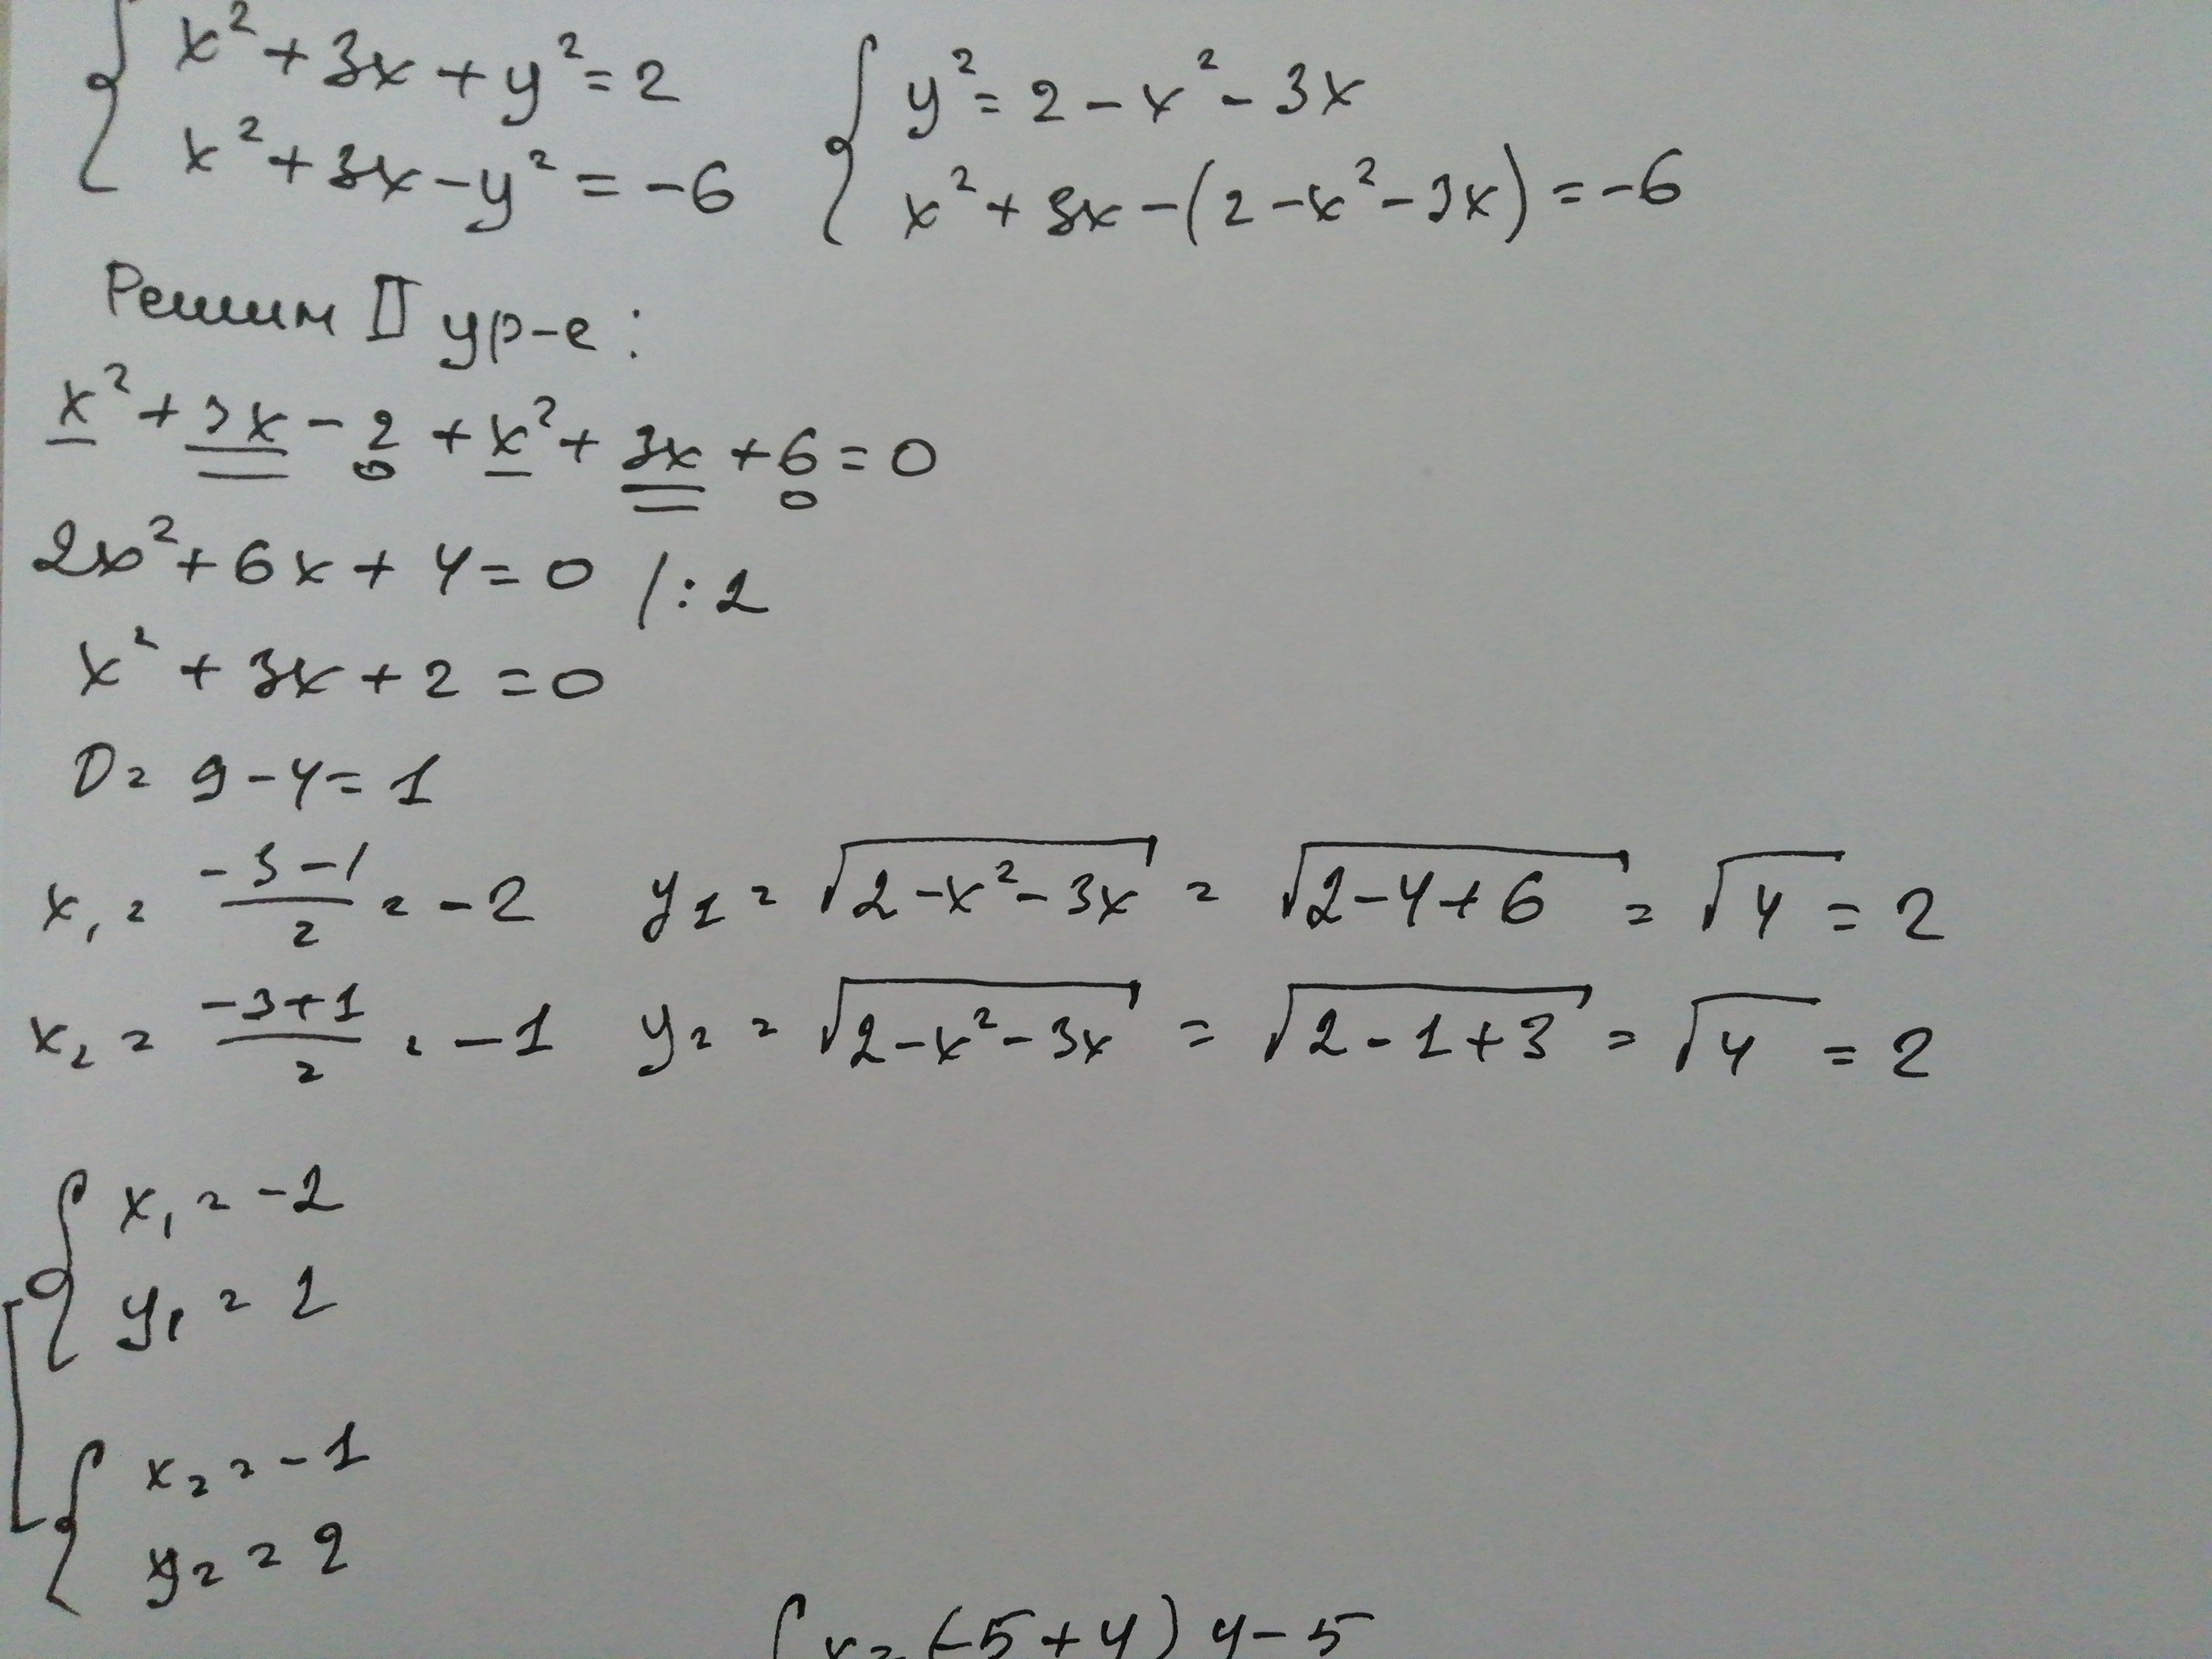 { x² + 3x + y² = 2
x² + 3x - y² = -6
{ y² = 2 - x² - 3x
x² + 3x - (2 - x² - 3x) = -6
Решим II ур-е:
x² + 3x - 2 + x² + 3x + 6 = 0
2x² + 6x + 4 = 0 /: 2
x² + 3x + 2 = 0
D = 9 - 4 = 1
x₁ = (-3 - 1)/2 = -2 y₁ = √(2 - x² - 3x) = √(2 - 4 + 6) = √4 = 2
x₂ = (-3 + 1)/2 = -1 y₂ = √(2 - x² - 3x) = √(2 - 1 + 3) = √4 = 2
[ { x₁ = -2
y₁ = 2
{ x₂ = -1
y₂ = 2
{ x = (-5 + 4) y - 5